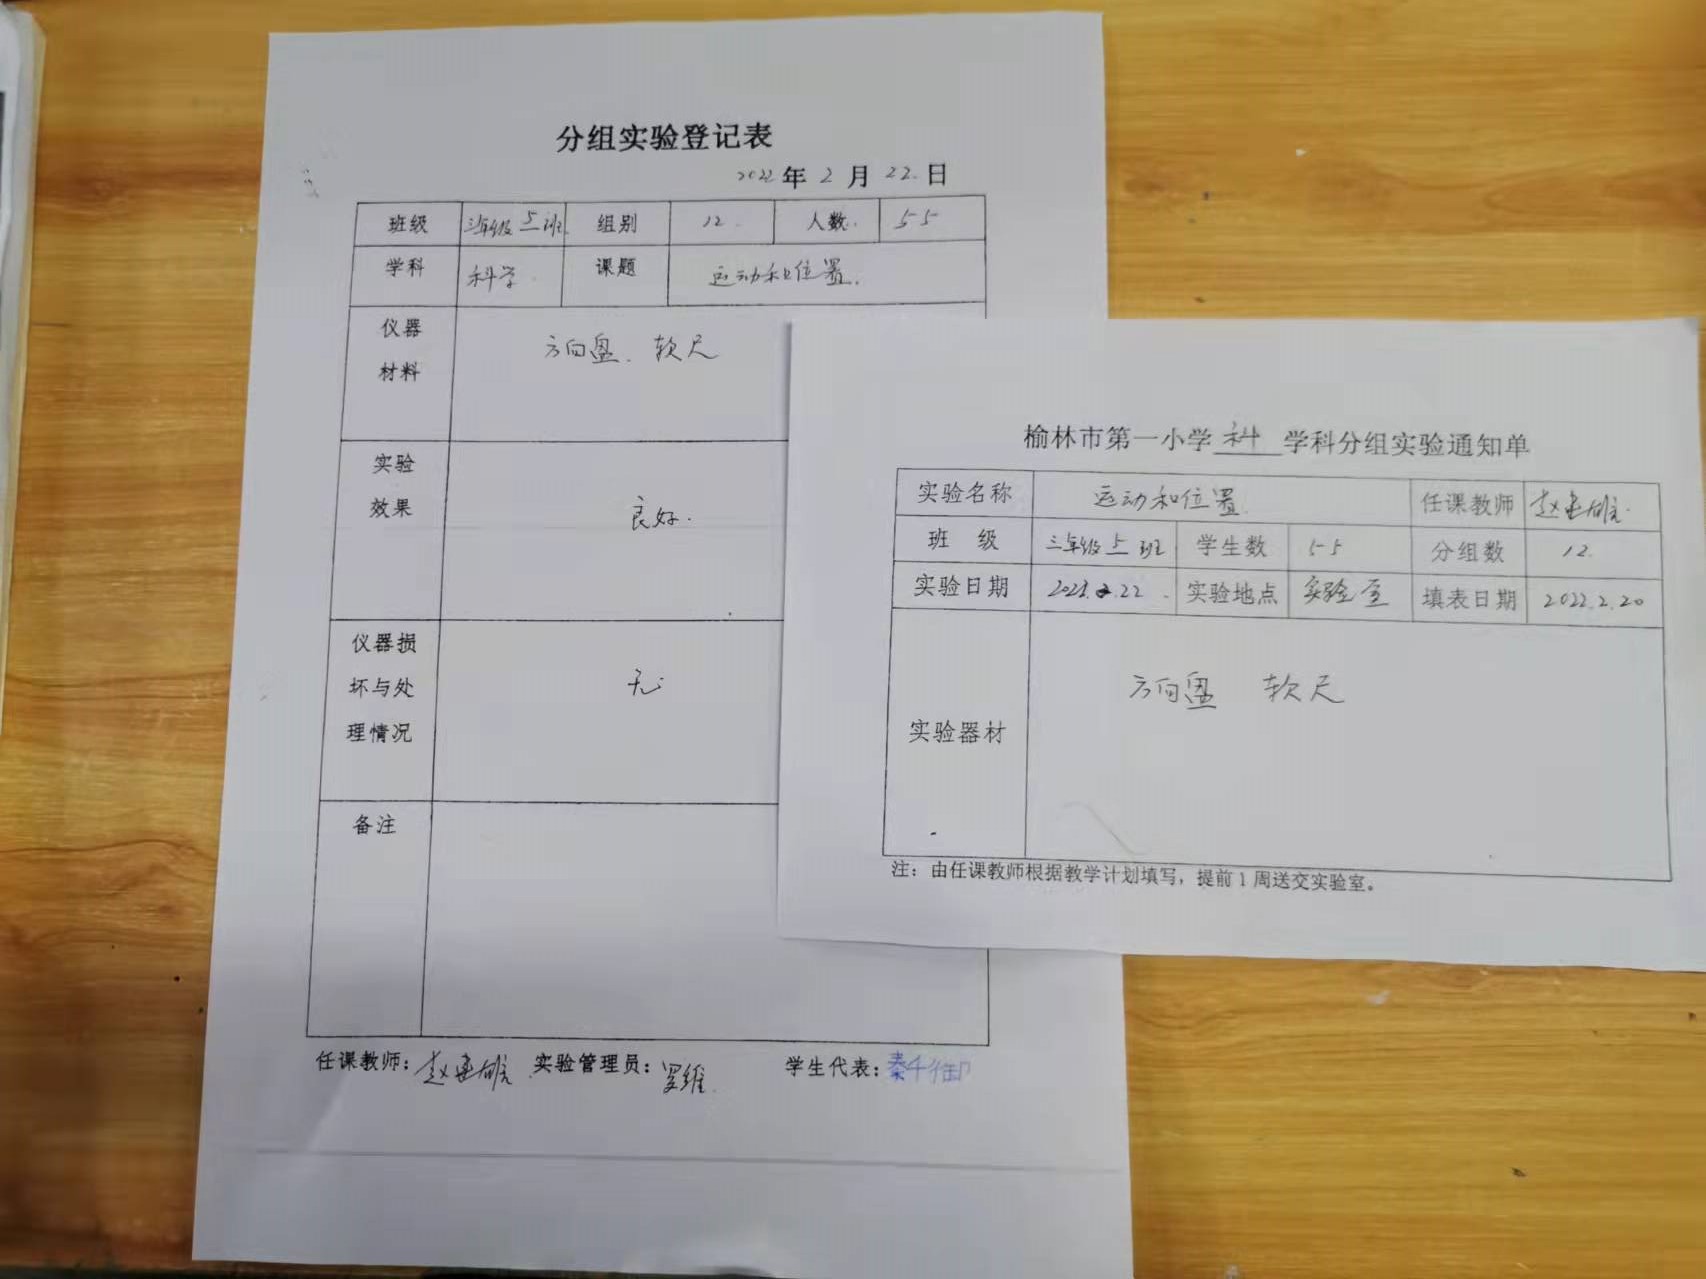 分组实验登记表
2022年2月22日
班级 三年级5班 组别 12 人数 55
学科 科学 课题 运动和位置
仪器材料 方向盘、软尺
实验效果 良好
仪器损坏与处理情况 无
备注
任课教师: 实验管理员: 罗维 学生代表:
榆林市第一小学 科 学科分组实验通知单
实验名称 运动和位置 任课教师
班 级 三年级5班 学生数 55 分组数 12
实验日期 实验地点 实验室 填表日期 2022.2.20
实验器材 方向盘 软尺
注：由任课教师根据教学计划填写，提前1周送交实验室。